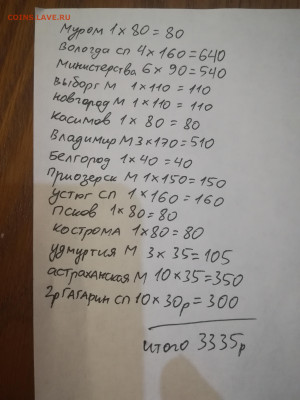 COINSS.LAVE.RU
Муром 1×80=80
Вологда СП 4×160=640
Министерства 6×90=540
Выборг М 1×110=110
Новгород М 1×110=110
Касимов 1×80=80
Владимир М 3×170=510
Белгород 1×40=40
Приозерск М 1×150=150
Устюг СП 1×160=160
Псков 1×80=80
Кострома 1×80=80
Удмуртия М 3×35=105
Астраханская М 10×35=350
2р ГАГАРИН СП 10×30р=300
итого 3335р